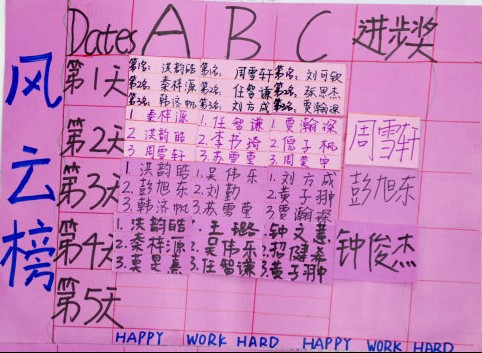 风云榜
Dates A B C 进步奖
第1天
第1名: 洪韵皓 第1名: 周雪轩 第1名: 刘可钦
第2名: 秦梓源 第2名: 任智谦 第2名: 张思杰
第3名: 韩济帆 第3名: 刘方成 第3名: 贾瀚琛
第2天
1 秦梓源 1.任智谦 1.贾瀚琛
2 洪韵皓 2.李书琦 2.信子枫
3 周雪轩 3.苏雪莹 3.周雯
周雪轩
第3天
1. 洪韵皓 1.吴伟乐 1.刘方成
2.彭旭东 2.刘勤 2.黄子翀
3.韩济帆 3.苏雪莹 3.贾瀚琛
彭旭东
第4天
1.洪韵皓 1.王璐 1.钟文慧
2.秦梓源 2.吴伟乐 2.招健希
3.莫是熹 3.任智谦 3.黄子翀
钟俊杰
第5天
HAPPY WORK HARD HAPPY WORK HARD